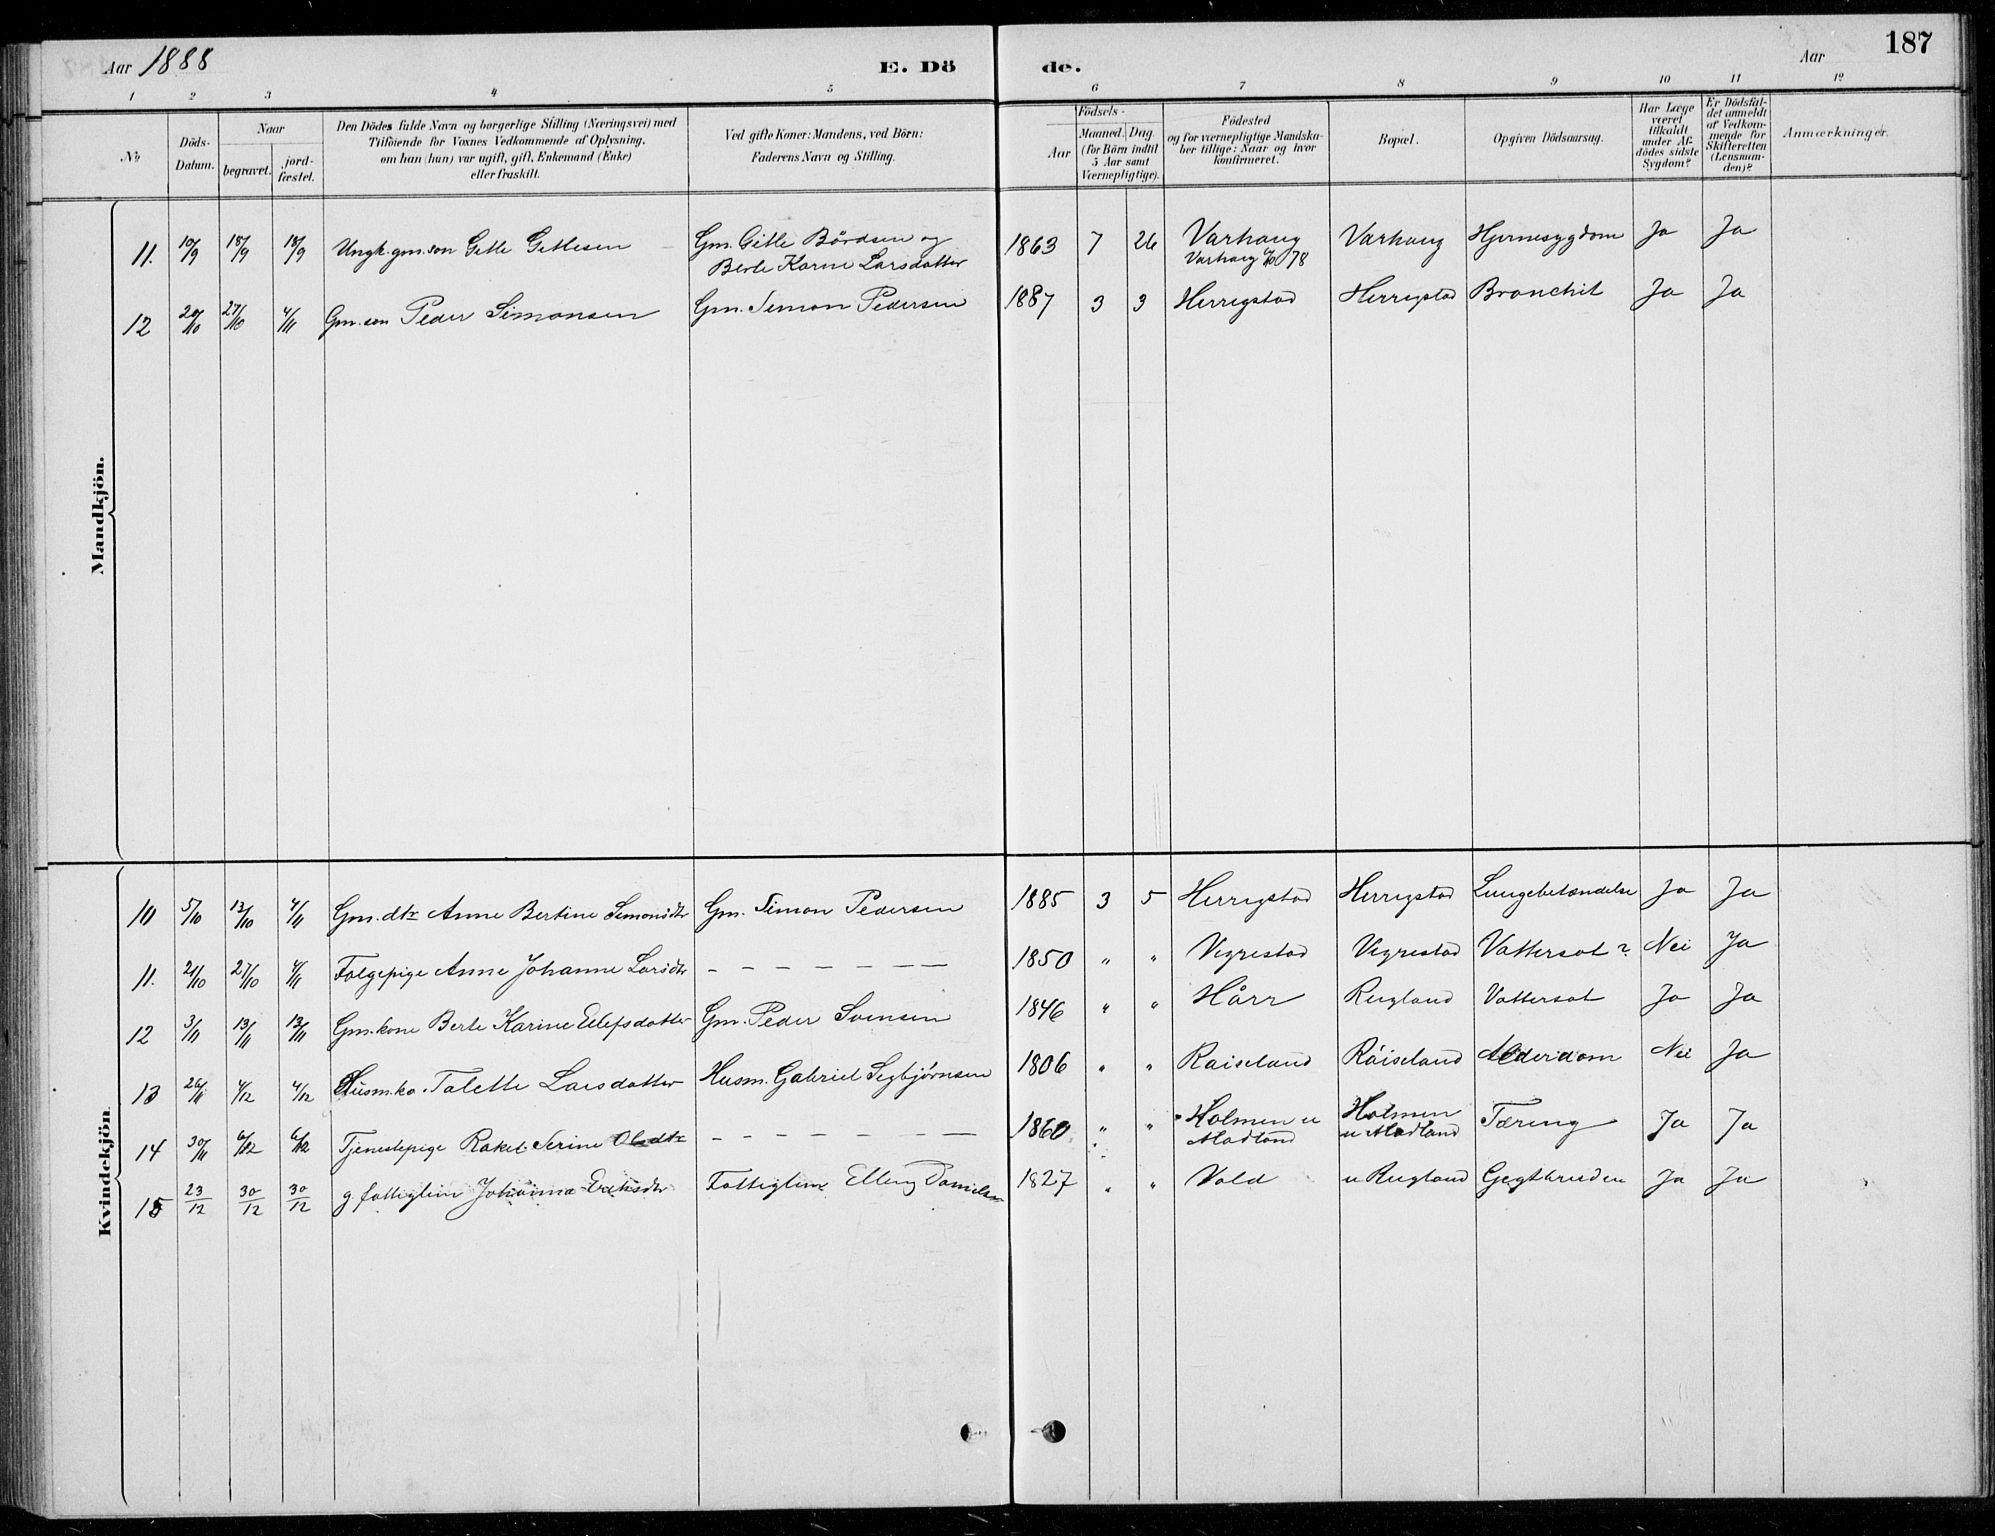 187
Aar 1888 E. Dö de. Aar
1 2 3 4 5 6 7 8 9 10 11 12
No
Döds-Datum.
Naar
begravet.
jord-fæstet.
Den Dödes fulde Navn og borgerlige Stilling (Næringsvei) med
Tilföiende for Voxnes Vedkommende af Oplysning,
om han (hun) var ugift, gift, Enkemand (Enke)
eller fraskilt.
Ved gifte Koner: Mandens, ved Börn:
Faderens Navn og Stilling.
Födsels-
Aar
Maaned. Dag.
(for Börn indtil
5 Aar samt
Værnepligtige).
Födested
og for værnepligtige Mandska-
ber tillige: Naar og hvor
konfirmeret.
Bopæl.
Opgiven Dödsaarsag.
Har Læge
været
tilkaldt
under Af-
dödes sidste
Sygdom?
Er Dödsfal-
det anmeldt
af Vedkom-
mende for
Skifteretten
(Lensman-
den)?
Anmærkninger.
Mandkjön.
11. 10/9 18/9 18/9 Ungk. gm. søn Gitle Gitlesen Gm. Gitle Bårdsen og 1863 7 26 Varhaug Varhaug Hjernesygdom Ja Ja
Berte Karine Larsdatter Varhaug 78
12 20/10 27/10 4/11 Gm. søn Peder Simonsen Gm. Simon Pedersen 1887 3 3 Herrigstad Herrigstad Bronchit Ja Ja
Kvindekjön
10 5/10 13/10 4/11 Gm. dtr Anne Bertine Simonsdtr Gm. Simon Pedersen 1885 3 5 Herrigstad Herrigstad Lungebetændelse Ja Ja
11. 21/10 27/10 4/11 Følgepige Anne Johanne Larsdtr – – – – – – – 1850 " " Vigrestad Vigrestad Vattersot? Nei Ja
12 3/11 13/11 13/11 Gm. kone Berte Karine Ellefsdatter Gm. Peder Svensen 1846 " " Hårr Rugland Vattersot Ja Ja
13 26/11 4/12 4/12 Husm.ko. Talette Larsdatter Husm. Gabriel Segbjørnsen 1806 " " Raiseland Råiseland Alderdom Nei Ja
14 30/11 6/12 6/12 Tjenestepige Rakel Serine Olsdtr – – – – – – – 1860 " " Holmen u Holmen Tæring Ja Ja
Madland u Madland
15 23/12 30/12 30/12 g fattiglem Johanna Fattiglem Elling Danielsen 1827 " " Vold u Rugland Gigtbrusden Ja Ja